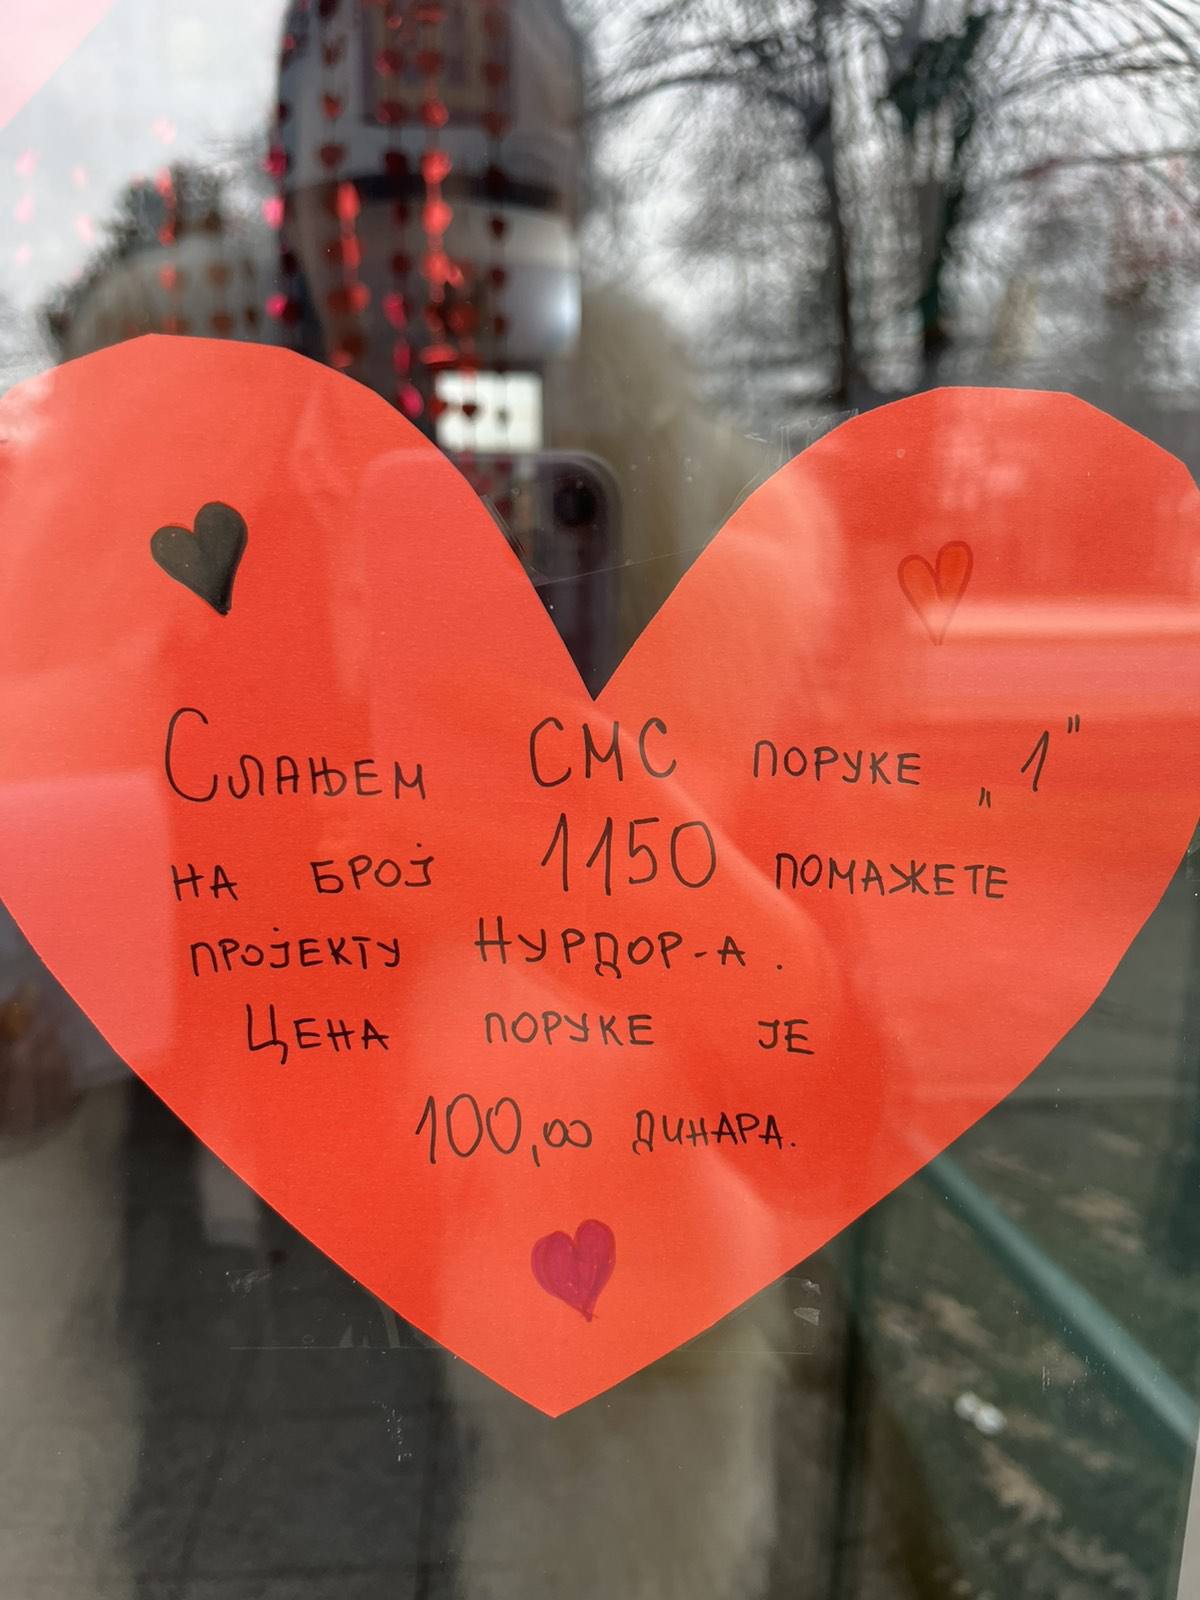 Слањем СМС поруке „1"
на број 1150 помажете
пројекту НУРДОР-а.
Цена поруке је
100,00 динара.